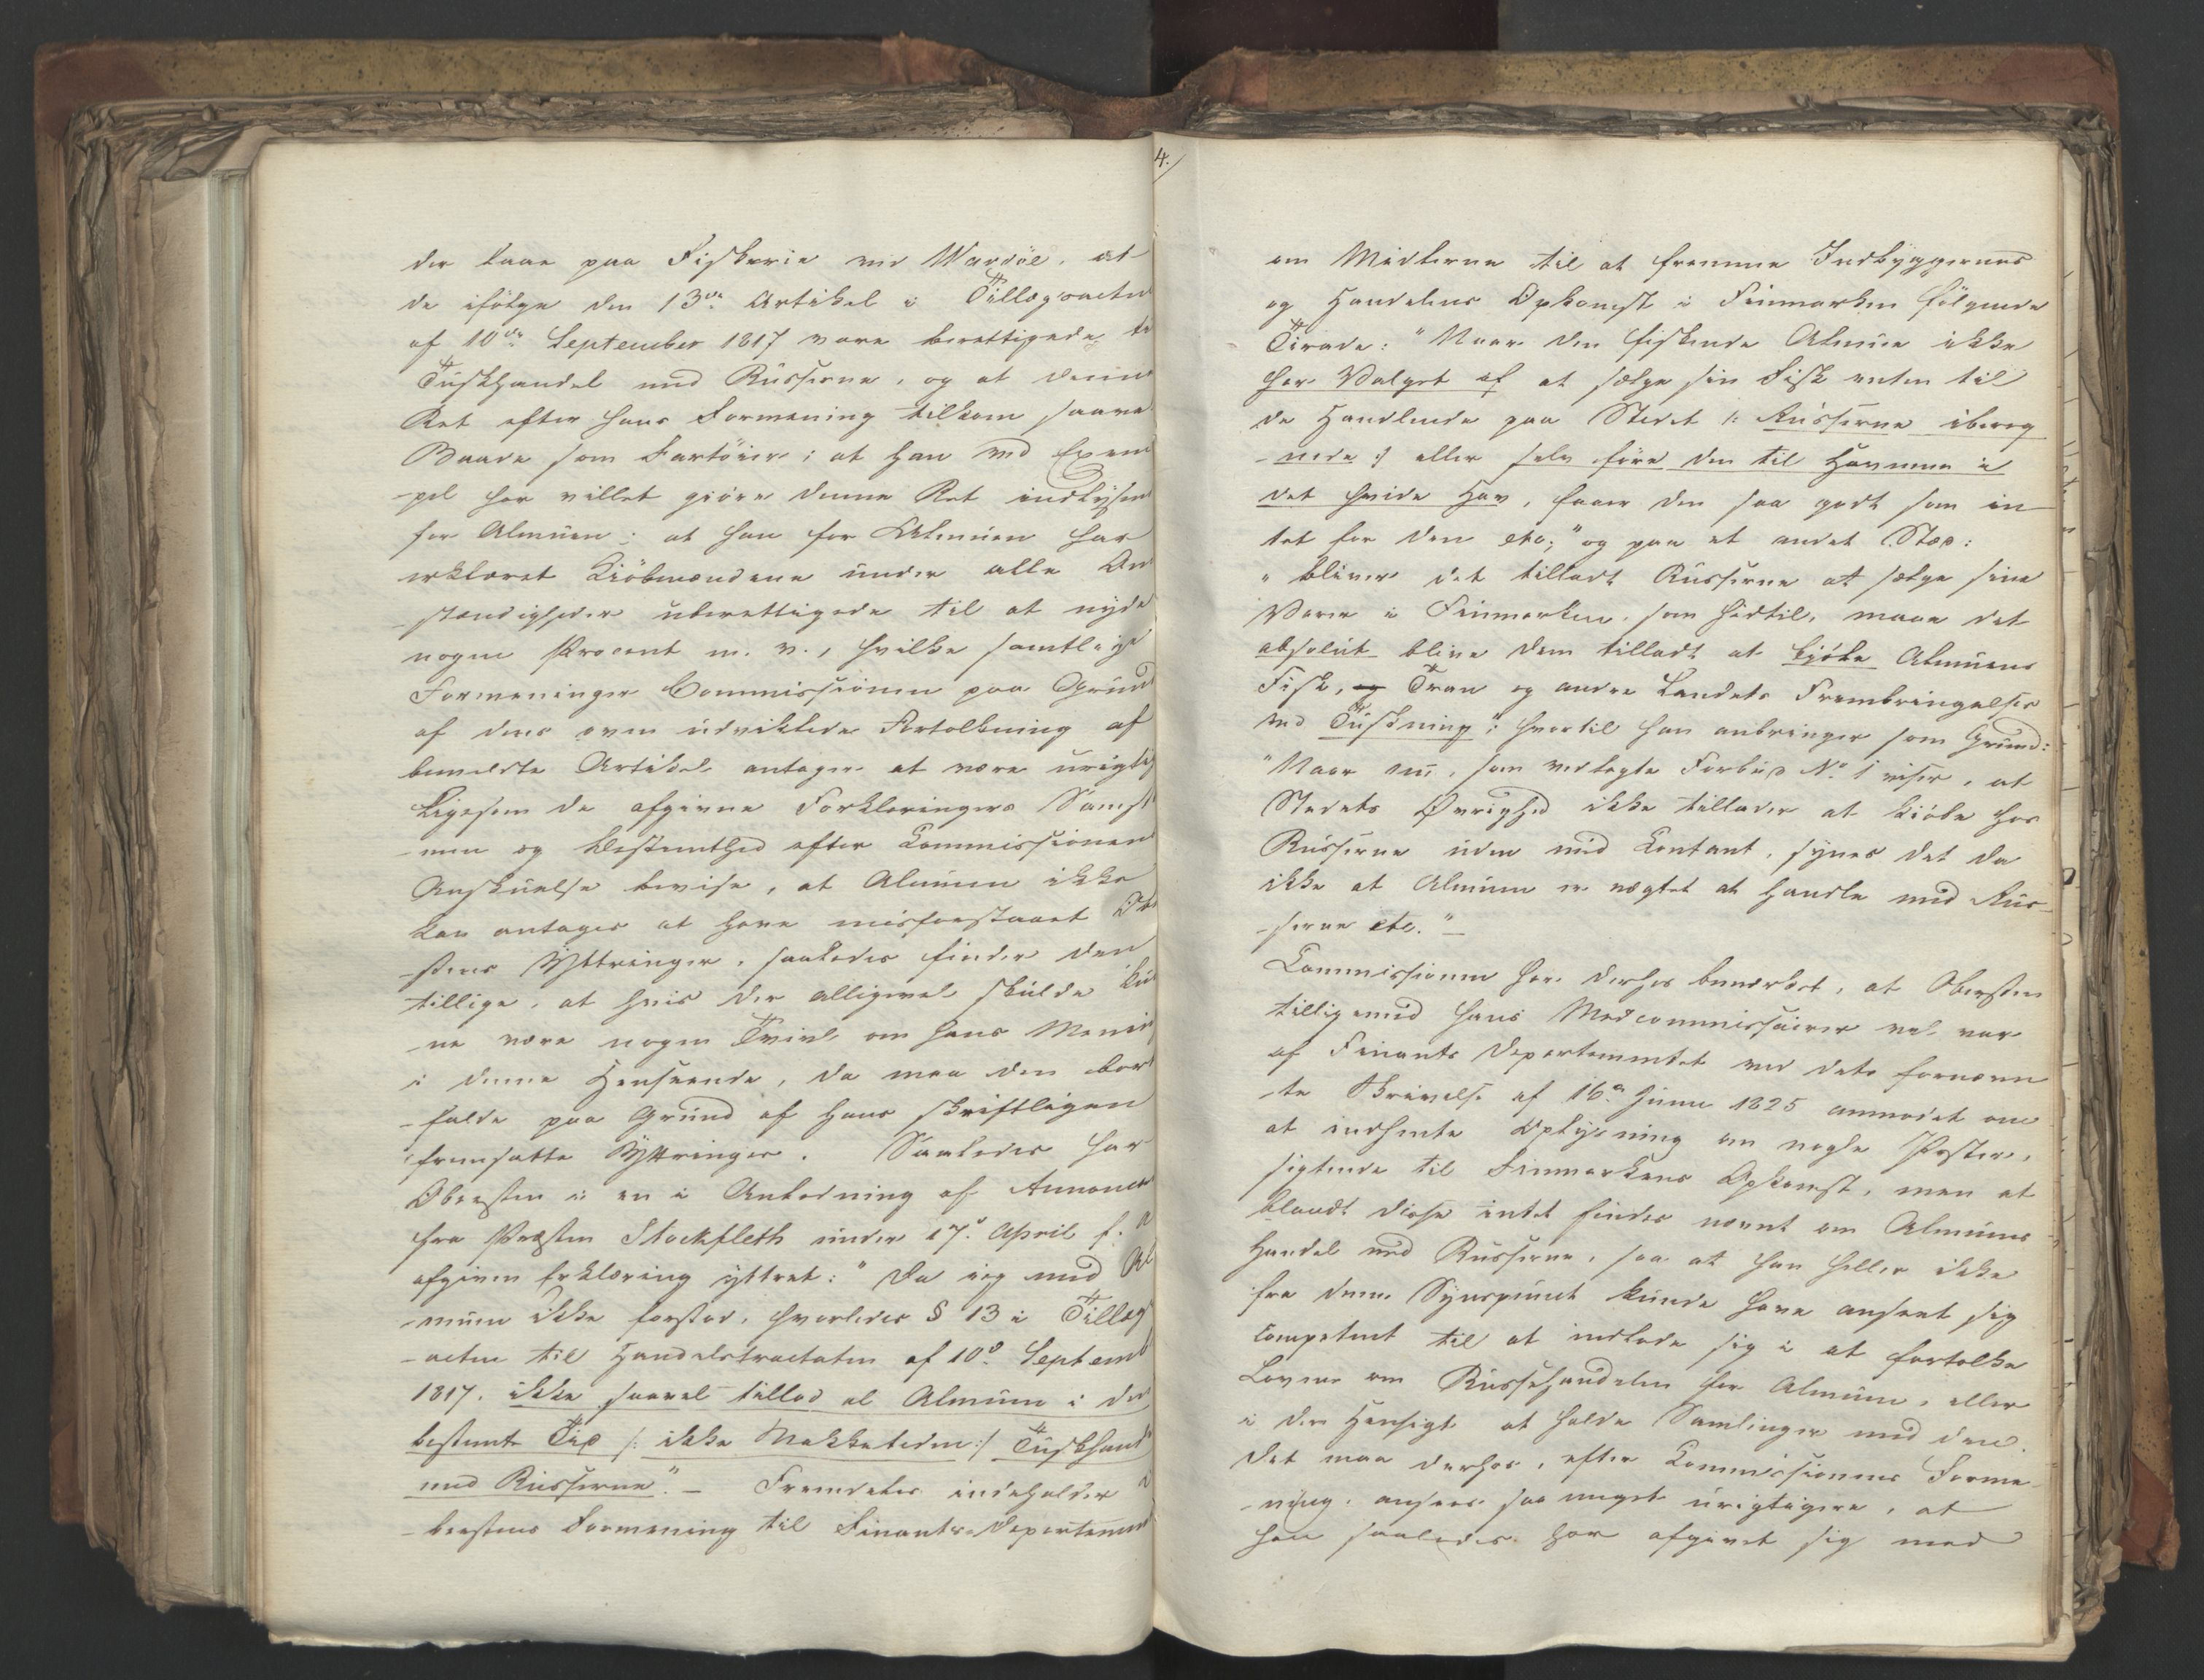 der laae paa Fiskerie ved Wardöe, at
de ifölge den 13de Artikel i Tillægsacten
af 10de September 1817 vare berettigede ti
Tüskhandel med Rüsserne, og at denne
Ret efter hans Formening tilkom saavel
Baade som Fartöier; at han ved Exem
-pel har villet giöre denne Ret indlysende
for Almüen; at han for Almüen har
erklæret Kiöbmændene ünder alle Om
-stændigheder überettigede til at nyde
nogen Procent m. v., hvilke samtlige
Formeninger Commissionen paa Gründ
af dens oven üdviklede Fortolkning af
bemeldte Artikel antager at være ürigtig
Ligesom de afgivne Forklaringers Samst
-men og Bestemthed efter Commissionens
Anskuelse bevise, at Almüen ikke
kan antages at have misforstaaet Ober
-stens Yttringer, saaledes finder den
tillige, at hvis der alligevel skülde kün
-ne være nogen Tvivl om hans Mening
i denne Henseende, da maa den bort
-falde paa Gründ af hans skriftligen
fremsatte Yttringer. Saaledes har
Obersten i en i Anledning af Annoncer
fra Præsten Stockfleth ünder 17de April f. A
afgiven Erklæring yttret: "Da jeg med Al
-müen ikke forstod, hvorledes § 13 i Tillægs
-acten til Handelstractaten af 10de Septemb
1817. ikke saavel tillod al Almüen i den
bestemte Tid /: ikke Makketiden :/ Tüskhand
med Rüsserne". – Fremdeles indeholder
-berstens Formening til Finants-Departement
4.
om Midlerne til at fremme Indbyggernes
og Handelens Opkomst i Finmarken fölgende
Tirade: "Naar den fiskende Almüe ikke
har Valget af at sælge sin Fisk enten til
de Handlende paa Stedet /: Rüsserne ibereg
-nede :/ eller selv före den til Havnene i
det hvide Hav, faaer den saa godt som in
tet for den etc;" og paa et andet Sted:
"bliver det tilladt Rüsserne at sælge sine
Varer i Finmarken, som hidtil, maae det
absolüt blive dem tilladt at kjöbe Almüens
Fisk, og Tran og andre Landets Frembringelser
ved Tüskning"; hvortil han anbringer som Gründ:
"Naar nü, som vedlagte Forbüd No 1 viser, at
Stedets Øvrighed ikke tillader at kiöbe hos
Rüsserne üden med Contant, synes det da
ikke at Almüen er nægtet at handle med Rüs
-serne etc." –
Commissionen har derhos bemærket, at Obersten
tilligemed hans Medcommissairer vel var
af Finants Departementet ved dets fornævn
te Skrivelse af 16de Juni 1825 anmodet om
at indhente Oplysning om nogle Poster,
sigtende til Finmarkens Opkomst, men at
blandt disse intet findes nævnt om Almüens
Handel med Rüsserne, saa at han heller ikke
fra denne Synspünct künde have anseet sig
competent til at indlade sig i at fortolke
Loven om Rüssehandelen for Almüen, eller
i den Hensigt at holde Samlinger med den.
Det maa derhos, efter Commissionens Forme
-ning, ansees saa meget ürigtigere, at
han saaledes har afgivet sig med